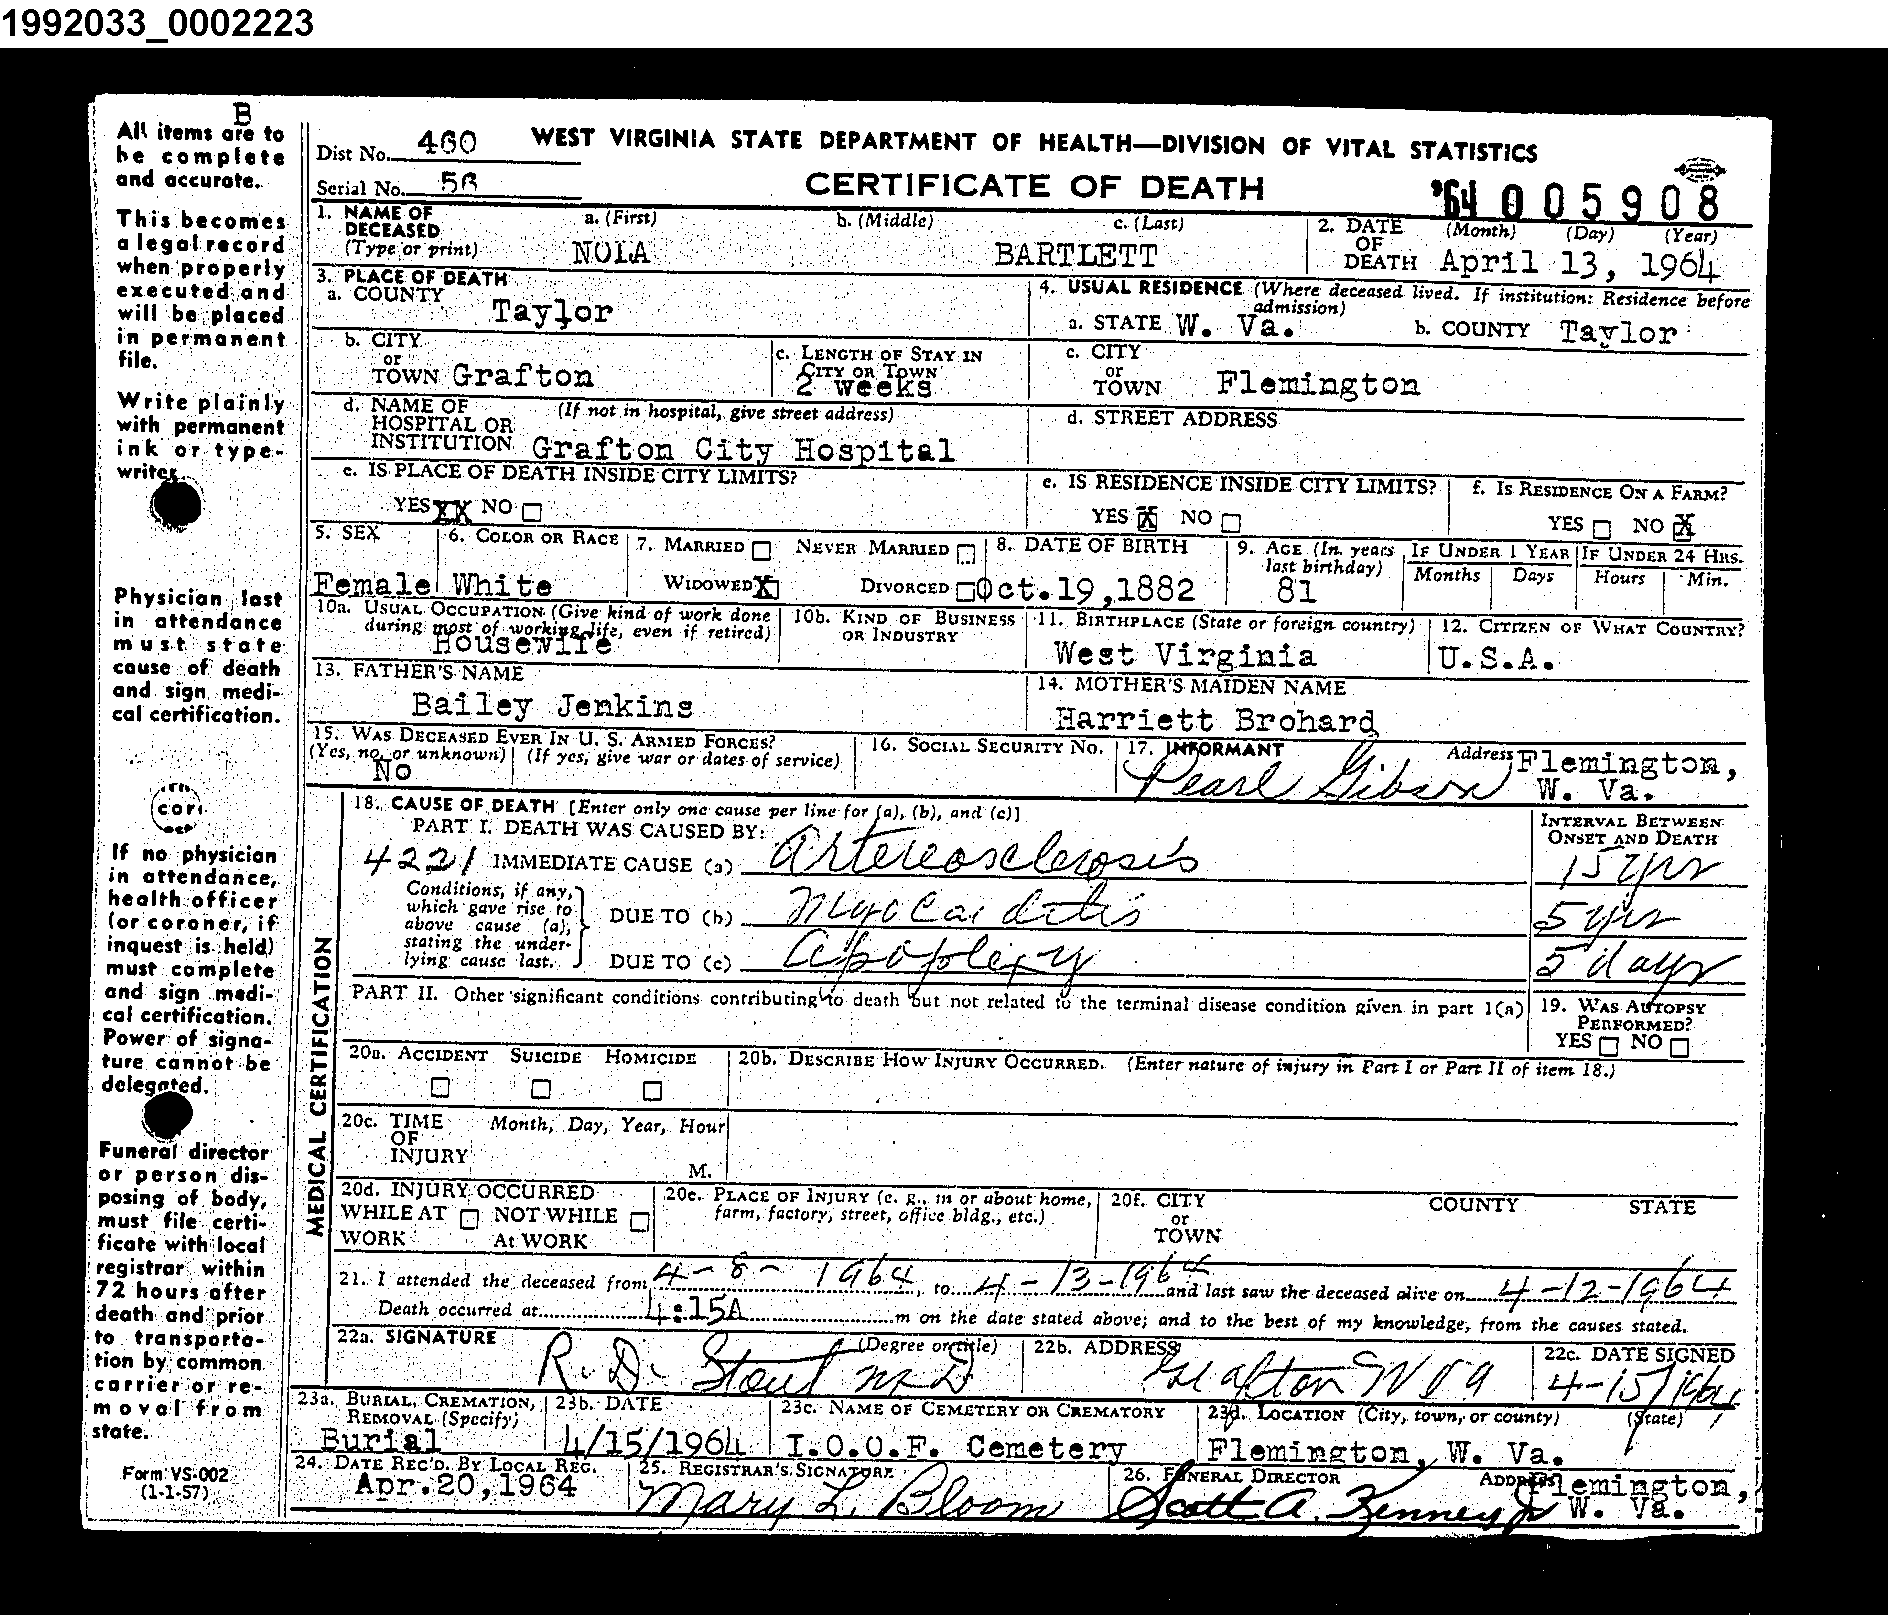 1992033_0002223
B
All items are to
be complete
and accurate.
This becomes
a legal record
when properly
executed and
will be placed
in permanent
file.
Write plainly
with permanent
ink or type-
writer
Physician last
in attendance
must state
cause of death
and sign medi-
cal certification.
cor
If no physician
in attendance,
health officer
(or coroner, if
inquest is held)
must complete
and sign medi-
cal certification.
Power of signa-
ture cannot be
delegated.
Funeral director
or person dis-
posing of body,
must file certi-
ficate with local
registrar within
72 hours after
death and prior
to transporta-
tion by common
carrier or re-
moval from
state.
Form VS-002
(1-1-57)
Dist No. 460
WEST VIRGINIA STATE DEPARTMENT OF HEALTH—DIVISION OF VITAL STATISTICS
Serial No. 56
CERTIFICATE OF DEATH
'64 005908
1. NAME OF DECEASED (Type or print) a. (First) b. (Middle) c. (Last)
NOLA BARTLETT
2. DATE OF DEATH (Month) (Day) (Year)
April 13, 1964
3. PLACE OF DEATH
a. COUNTY Taylor
4. USUAL RESIDENCE (Where deceased lived. If institution: Residence before admission)
a. STATE W. Va. b. COUNTY Taylor
b. CITY or TOWN Grafton
c. LENGTH OF STAY IN CITY OR TOWN 2 weeks
c. CITY or TOWN Flemington
d. NAME OF HOSPITAL OR INSTITUTION (If not in hospital, give street address)
Grafton City Hospital
d. STREET ADDRESS
e. IS PLACE OF DEATH INSIDE CITY LIMITS?
YES XX NO
e. IS RESIDENCE INSIDE CITY LIMITS?
YES X NO
f. IS RESIDENCE ON A FARM?
YES NO X
5. SEX Female
6. COLOR OR RACE White
7. MARRIED NEVER MARRIED
WIDOWED X DIVORCED
8. DATE OF BIRTH Oct.19,1882
9. AGE (In years last birthday) 81
IF UNDER 1 YEAR Months Days
IF UNDER 24 HRS. Hours Min.
10a. USUAL OCCUPATION (Give kind of work done during most of working life, even if retired)
Housewife
10b. KIND OF BUSINESS OR INDUSTRY
11. BIRTHPLACE (State or foreign country)
West Virginia
12. CITIZEN OF WHAT COUNTRY?
U.S.A.
13. FATHER'S NAME
Bailey Jenkins
14. MOTHER'S MAIDEN NAME
Harriett Brohard
15. WAS DECEASED EVER IN U. S. ARMED FORCES?
(Yes, no, or unknown) (If yes, give war or dates of service)
No
16. SOCIAL SECURITY NO.
17. INFORMANT Pearl Gibson
Address Flemington, W. Va.
MEDICAL CERTIFICATION
18. CAUSE OF DEATH [Enter only one cause per line for (a), (b), and (c)]
PART I. DEATH WAS CAUSED BY:
INTERVAL BETWEEN ONSET AND DEATH
4221 IMMEDIATE CAUSE (a) Artereosclerosis 15 yrs
Conditions, if any, which gave rise to above cause (a), stating the under-lying cause last.
DUE TO (b) Myocarditis 5 yrs
DUE TO (c) Apoplexy 5 days
PART II. Other significant conditions contributing to death but not related to the terminal disease condition given in part 1(a)
19. WAS AUTOPSY PERFORMED?
YES NO
20a. ACCIDENT SUICIDE HOMICIDE
20b. DESCRIBE HOW INJURY OCCURRED. (Enter nature of injury in Part I or Part II of item 18.)
20c. TIME OF INJURY Month, Day, Year, Hour
M.
20d. INJURY OCCURRED
WHILE AT WORK NOT WHILE At WORK
20e. PLACE OF INJURY (e. g., in or about home, farm, factory, street, office bldg., etc.)
20f. CITY or TOWN COUNTY STATE
21. I attended the deceased from 4-8-1964, to 4-13-1964 and last saw the deceased alive on 4-12-1964
Death occurred at 4:15A m on the date stated above; and to the best of my knowledge, from the causes stated.
22a. SIGNATURE (Degree or title)
R. D. Stout M D
22b. ADDRESS
Grafton W Va
22c. DATE SIGNED
4-15/1964
23a. BURIAL, CREMATION, REMOVAL (Specify)
Burial
23b. DATE
4/15/1964
23c. NAME OF CEMETERY OR CREMATORY
I.O.O.F. Cemetery
23d. LOCATION (City, town, or county) (State)
Flemington, W. Va.
24. DATE REC'D. BY LOCAL REG.
Apr.20,1964
25. REGISTRAR'S SIGNATURE
Mary L. Bloom
26. FUNERAL DIRECTOR
Scott A. Kenney Jr
ADDRESS Flemington, W. Va.